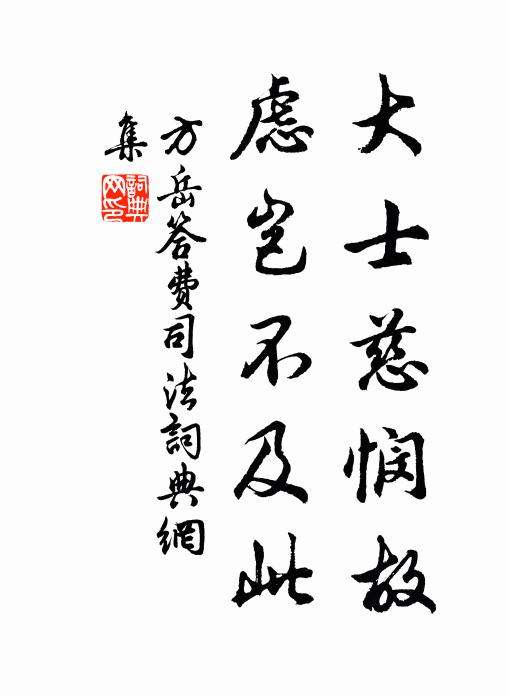 大士慈悯故
虑岂不及此
方岳答费司法詞典網
集
詞典
网印